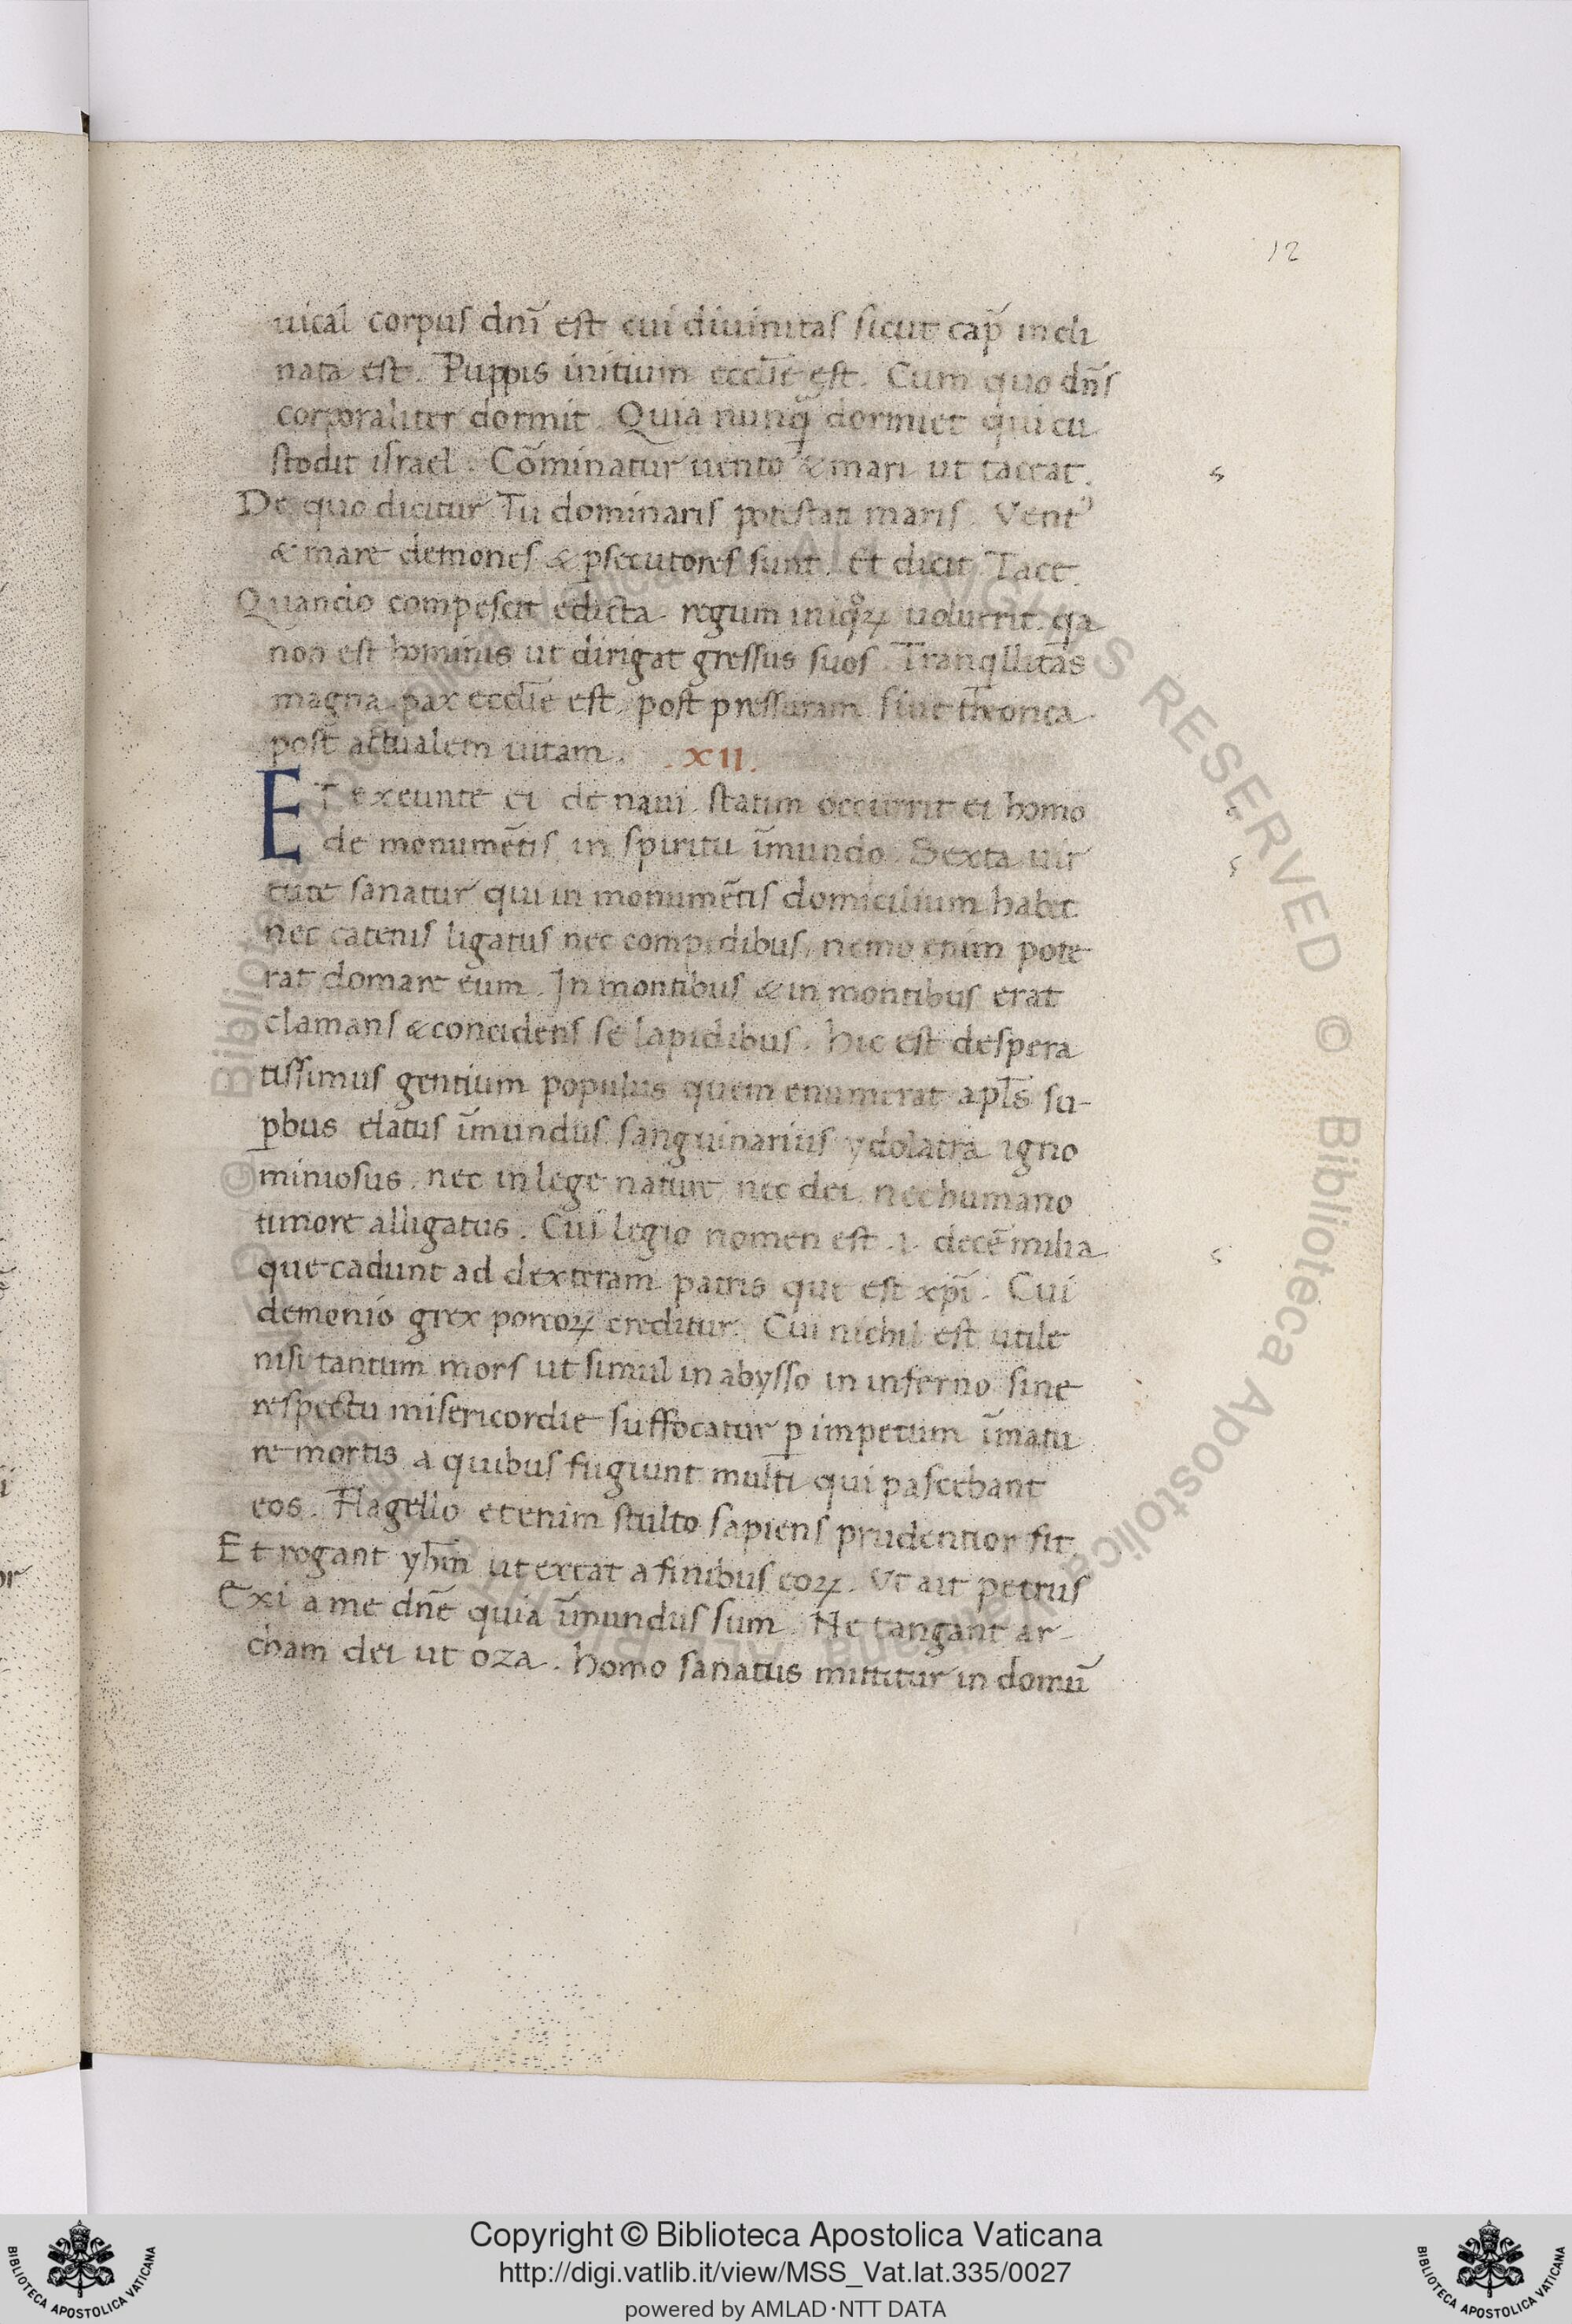 12
uical corpus dnī est cui diuinitas sicut cap̄ incli
nata est. Puppis initium eccl̄ie est. Cum quo dn̄s
corporaliter dormit. Quia nunq̄ dormiet qui cu
stodit israel. Cōminatur uento & mari ut taceat.
De quo dicitur Tu dominaris potestati maris. Vent᾽
& mare demones & ꝑsecutores sunt. Et dicit Tace.
Quando compescit edicta regum iniqoꝝ uoluerit. qa
non est hominis ut dirigat gressus suos. Tranqllitas
magna pax eccl̄ie est post pressuram. siue th̄eorica
post actualem uitam. .XII.
ET exeunte ei de naui statim occurrit ei homo
de monumētis in spiritu īmundo. Sexta uir
tute sanatur qui in monumētis domicilium habet
nec catenis ligatus nec compedibus, nemo enim pote
rat domare eum. In montibus & in montibus erat
clamans & concidens se lapidibus. hic est despera
tissimus gentium populus quem enumerat apl̄s su-
ꝑbus elatus īmundus sanguinarius ydolatra igno
miniosus. nec in lege nature nec dei nec humano
timore alligatus. Cui legio nomen est .i. decē milia
que cadunt ad dexteram patris que est xpī. Cui
demonio grex porcoꝝ creditur. Cui nichil est utile
nisi tantum mors ut simul in abysso in inferno sine
respectu misericordie suffocatur ꝑ impetum īmatu
re mortis a quibus fugiunt multi qui pascebant
eos. Flagello etenim stulto sapiens prudentior fit
Et rogant yh̄m ut exeat a finibus eoꝝ. Vt ait petrus
Exi a me dn̄e quia īmundus sum. Ne tangant ar-
cham dei ut oza. homo sanatus mittitur in domū
© Biblioteca Apostolica Vaticana
ALL RIGHTS RESERVED
© Biblioteca Apostolica Vaticana
Copyright © Biblioteca Apostolica Vaticana
http://digi.vatlib.it/view/MSS_Vat.lat.335/0027
powered by AMLAD·NTT DATA
BIBLIOTECA APOSTOLICA VATICANA
BIBLIOTECA APOSTOLICA VATICANA